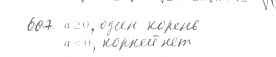 607. a ≥ 0, один корень
a < 0, корней нет